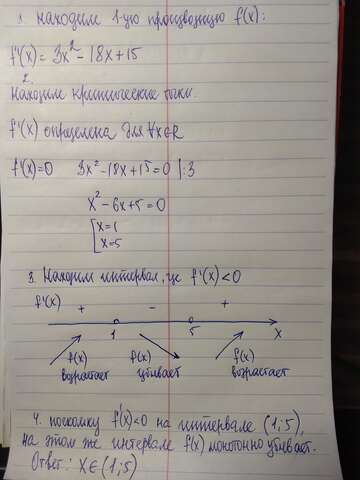 1. Находим 1-ую производную f(x):
f'(x) = 3x² - 18x + 15
2.
Находим критические точки.
f'(x) определена для ∀x∈R
f'(x)=0 3x² - 18x + 15 = 0 |:3
x² - 6x + 5 = 0
[x=1
x=5
3. Находим интервал, где f'(x) < 0
f'(x) + - +
1 5 x
f(x) f(x) f(x)
возрастает убывает возрастает
4. поскольку f'(x)<0 на интервале (1;5),
на этом же интервале f(x) монотонно убывает.
Ответ: x∈(1;5)